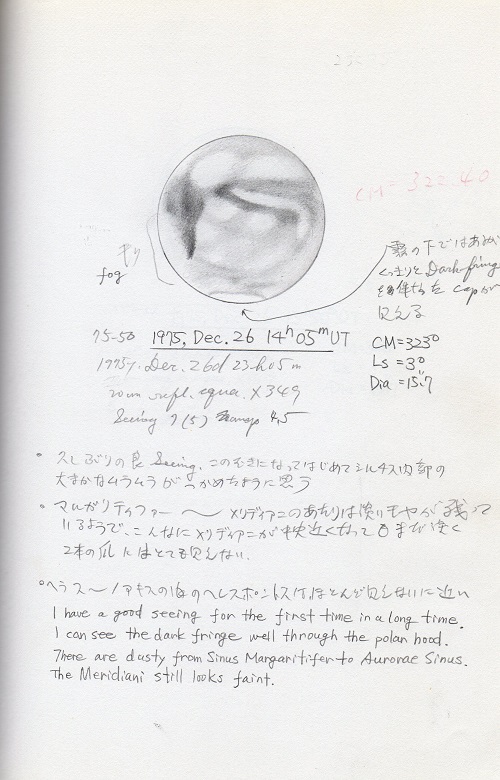 CM = 322.40
雲の下ではあるが
くっきりと Dark fring
を伴った cap が
見える
キリ
fog
75-50 1975, Dec. 26 14h 05m UT
CM=323°
Ls = 3°
Dia = 15".7
1975y. Dec. 26d 23h 05m
20cm refl. equa. ×349
Seeing 7 (5) Transp 4.5
• 久しぶりの良 Seeing. このむきになってはじめてシルチス内部の
大まかなムラムラがつかめたように思う
• マルガリティファー 〜 メリディアニのあたりは淡いモヤが残って
いるようで、こんなにメリディアニが中央近くなってもまだ淡く
2本の爪にはとても見えない.
○ヘラス〜ノアキスの間のヘレスポントスはほとんど見えないに近い
I have a good seeing for the first time in a long time.
I can see the dark fringe well through the polar hood.
There are dusty from Sinus Margaritifer to Aurorae Sinus.
The Meridiani still looks faint.